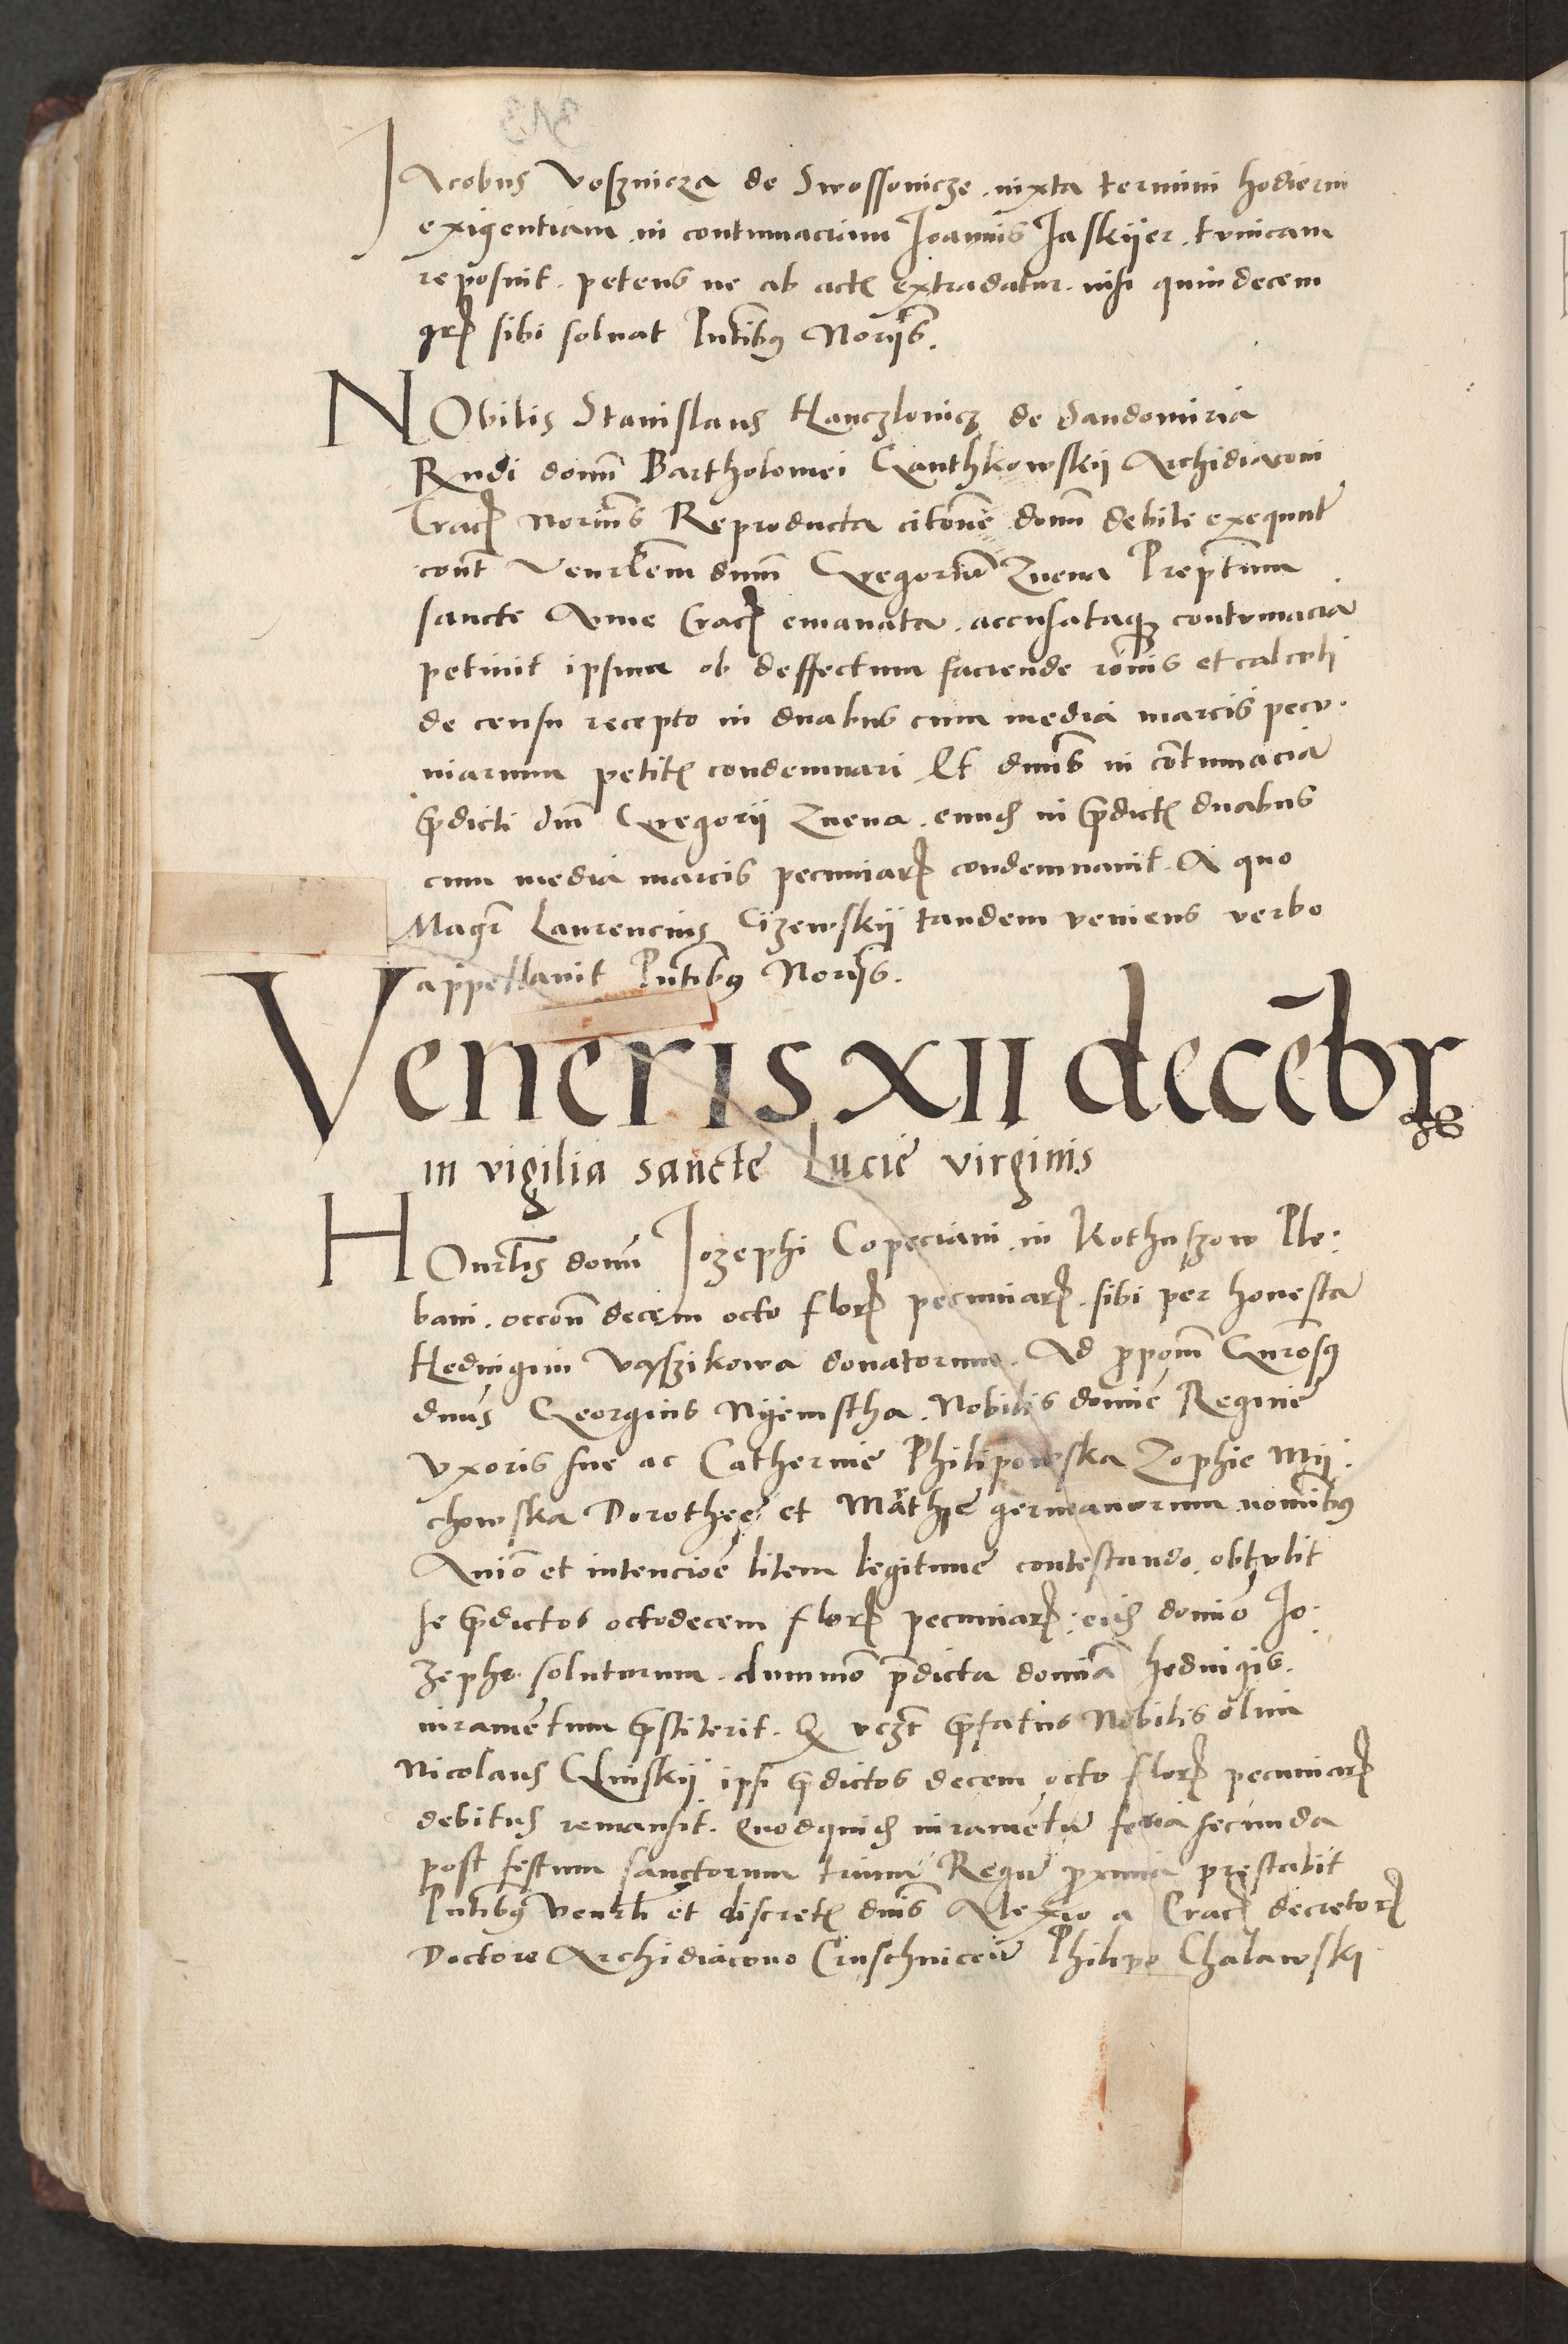 Jacobus Vosznicza de Swossovicze iuxta termini hodierni
exigentiam in contumaciam Joannis Jaskyer tunicam
reposuit. petens ne ab actis extradatur. nisi quindecem
grs sibi solvat Pntibus Noriis.
NObilis Stanislaus Hanczlovicz de Sandomiria
Rndi domi Bartholomei Ganthkowskij Archidiaconi
Crac Norius Reproducta citone domi debite exequut
cont Venrlem dnm Gregoriu Zuena Preptum
sancte Anne Crac emanata. accusataque contumacia
petiuit ipsum ob deffectum faciende ronis et calculi
de censu recepto in duabus cum media marcis pecu-
niarum petitis condemnari Et dnus in cotumacia
pdicti dni Gregorii Zuena. eund in pdictis duabus
cum media marcis pecuniar condemnauit. A quo
Magr Laurencius Cizewskij tandem veniens verbo
appellauit Pntibus Noriis.
Veneris XII decebr
in vigilia sancte Lucie virginis
HOnrlis domi Jozephi Copeciani in Kothuszow Ple-
bani. occone decem octo flor pecuniar. sibi per honesta
Heduigim Vassikowa donatorum. Ad ppom Gnrosus
dnus Georgius Nijemstha. Nobilis domine Regine
vxoris sue ac Catherine Philipowska Zophie Mij-
chowska Dorothee et Mathie germanorum nomibus
Anio et intencioe litem legitime contestando. obtulit
se pdictos octodecem flor pecuniar. eid domio Jo-
zepho soluturum. dummo pdicta domina Heduigis.
iuramentum pstiterit. Q vczt pfatus Nobilis olim
Nicolaus Glinskij ipsi pdictos decem octo flor pecuniar
debitus remansit. Quodquid iuramentu feria secunda
post festum sanctorum trium Regu proxima prestabit
Pntibus Venrli et discretis dnis Alexio a Crac decretor
Doctore Archidiacono Cruschuicen Philipo Chalawski